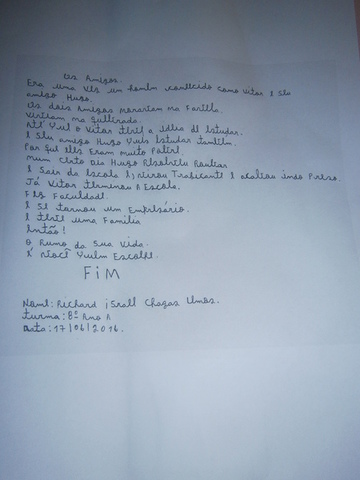 Os Amigos.
Era uma vês um homem conhecido como Vitor e seu
amigo Hugo.
Os dois Amigos moravam na Favilla.
Viviam na quebrada.
Até que o Vitor teve a ideia de Estudar.
E seu amigo Hugo quis Estudar também.
Por que eles Eram muito Pobre.
Num certo dia Hugo Resolveu Roubar
E Sair da Escola e, virou Traficante e acabou indo Preso.
Já Vitor terminou A Escola.
Fes Faculdade.
E se tornou um Empresário.
E teve uma Familia
Então!
O Rumo da Sua Vida.
É você Quem Escolhe.
FiM
Nome: Richard israel Chagas
turma: 8º Ano A
Data: 17/06/2016.